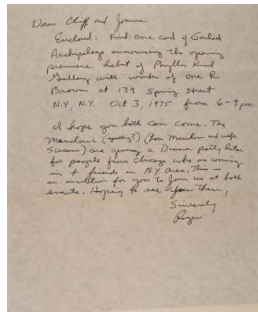 Dear Cliff and Joanna
Enclosed: Find: one card of Goulash
Archipelago announcing the opening
premiere debut of Phyllis Kind
Gallery with works of one R
Brown at 139 Spring Street
N.Y, N.Y. Oct 3, 1975 from 6-9 pm.
I hope you both can come. The
Manilows (spelling?) (Lou Manilow and wife
Susan) are giving a Dinner party later
for people from Chicago who are coming
in + friends in N.Y. area. This is
an invitation for you to join us at both
events. Hoping to see you then,
Sincerely
Roger